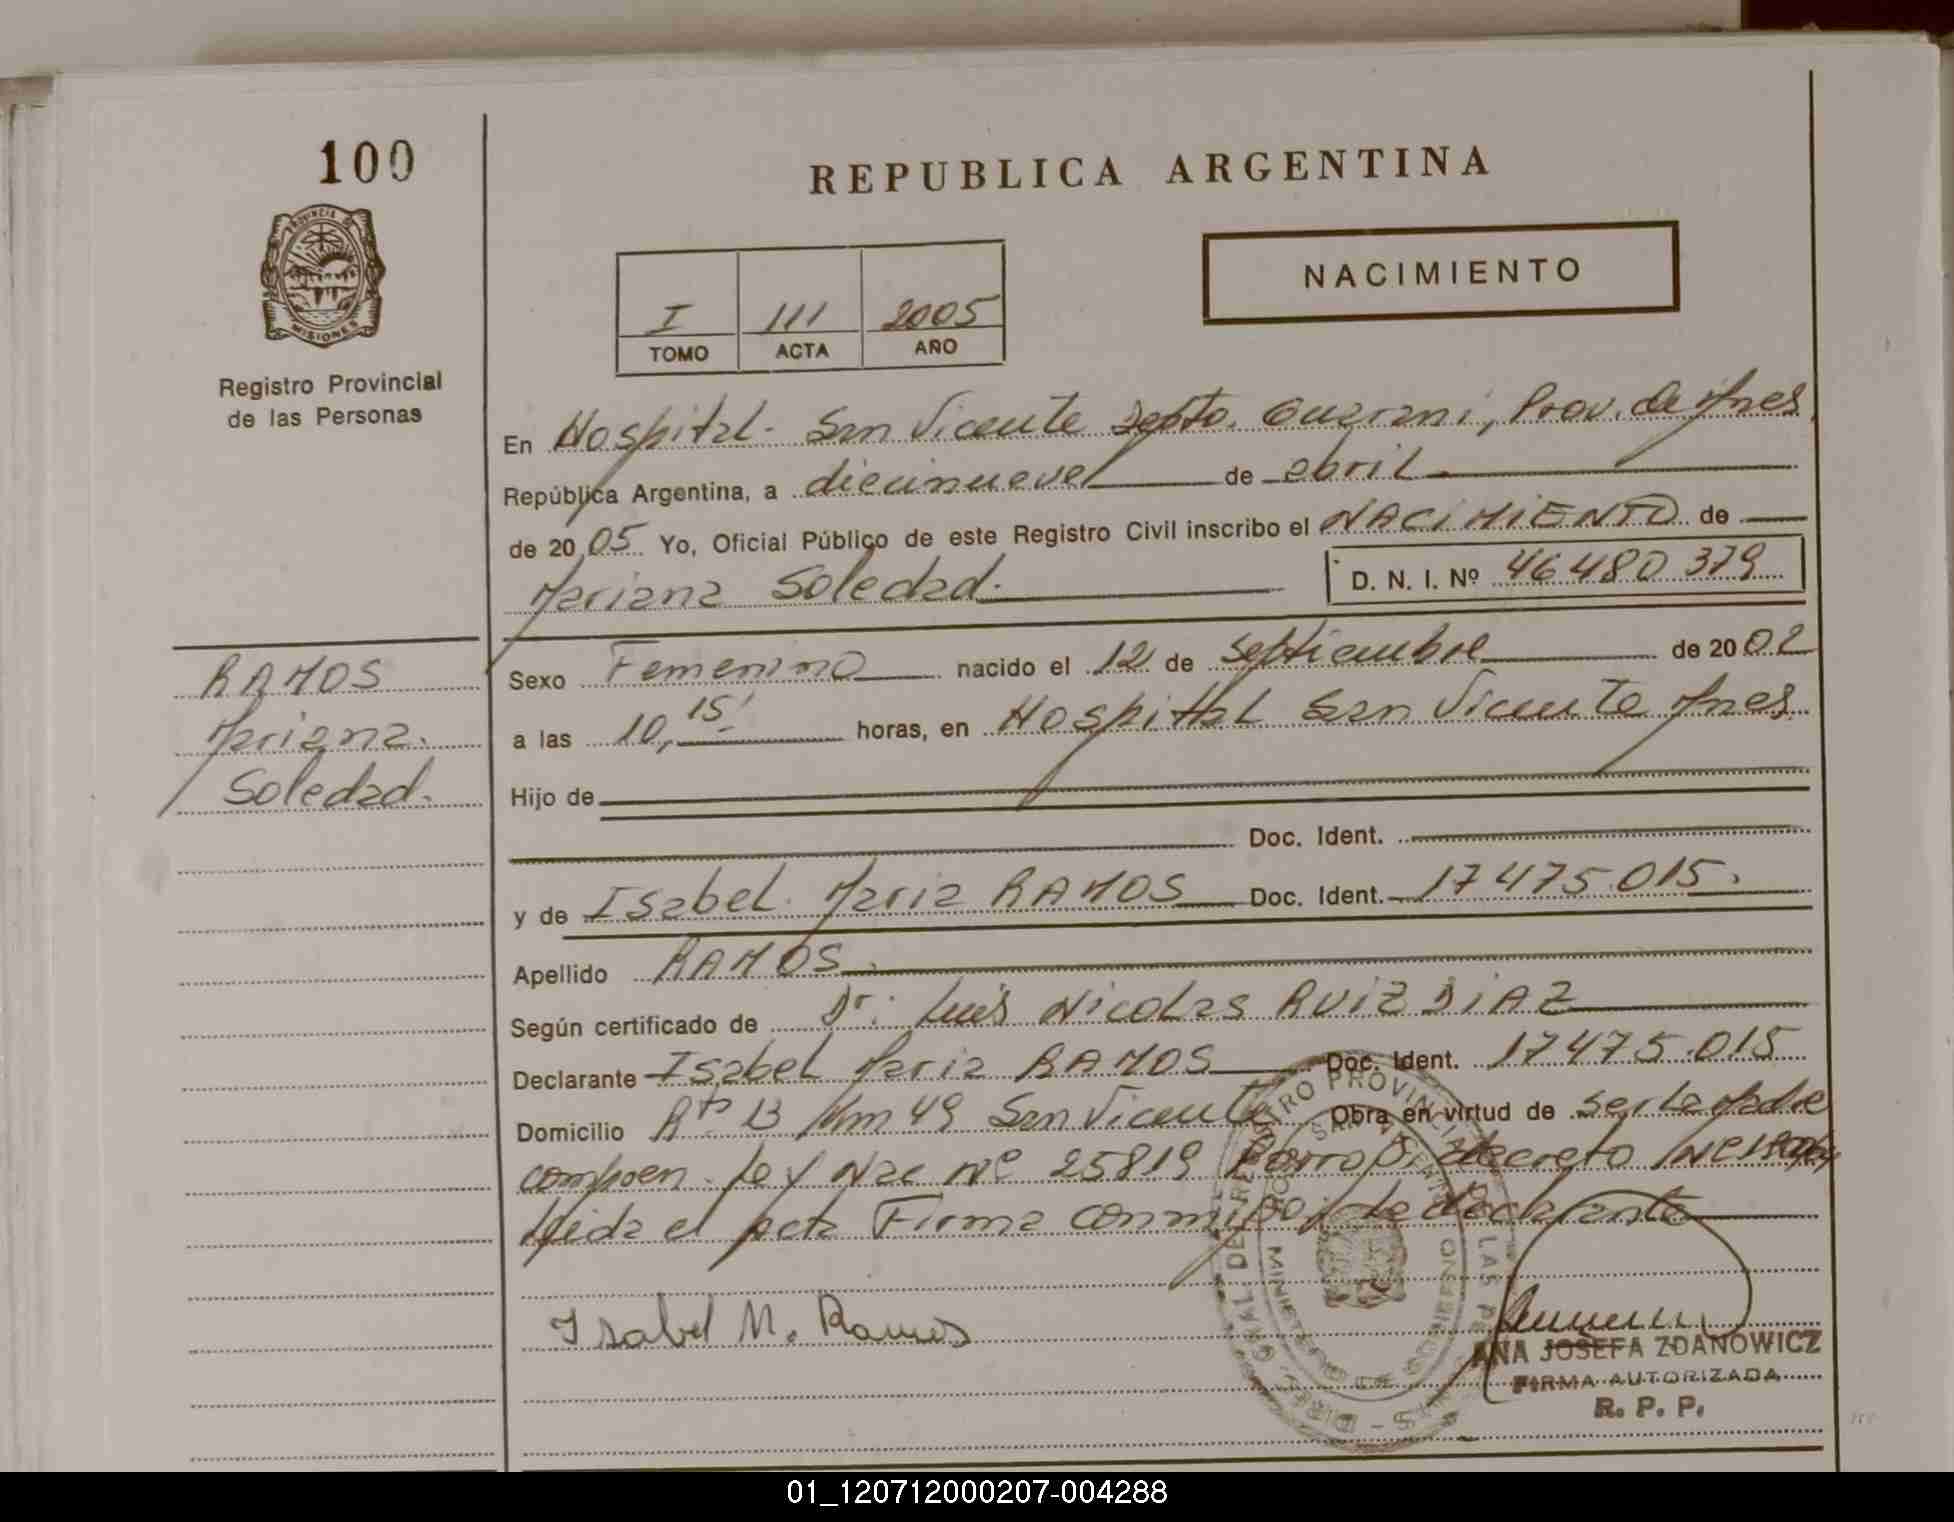 100
REPUBLICA ARGENTINA
PROVINCIA DE MISIONES
NACIMIENTO
I 111 2005
TOMO ACTA AÑO
Registro Provincial
de las Personas
En Hospital San Vicente Depto. Guarani, Prov. de Mnes
República Argentina, a diecinueve de abril
de 2005 Yo, Oficial Público de este Registro Civil inscribo el NACIMIENTO de
Mariana Soledad. D. N. I. Nº 46480379
RAMOS
Mariana
Soledad.
Sexo Femenino nacido el 12 de septiembre de 2002
a las 10,15' horas, en Hospital San Vicente Mnes
Hijo de
Doc. Ident.
y de Isabel Maria RAMOS Doc. Ident. 17475.015.
Apellido RAMOS.
Según certificado de Dr: Luis Nicolas RUIZ DIAZ
Declarante Isabel Maria RAMOS Doc. Ident. 17475.015
Domicilio Rta 13 Km 49 San Vicente Obra en virtud de ser la Madre
Ley Nac Nº 25819 decreto
Leida el acta Firma conmigo: la declarante
Isabel M. Ramos
ANA JOSEFA ZDANOWICZ
FIRMA AUTORIZADA
R. P. P.
01_120712000207-004288